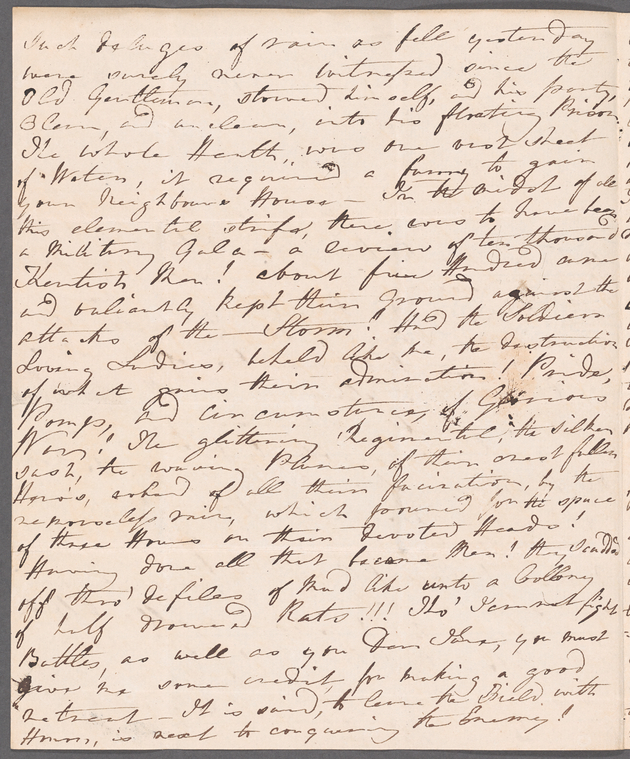 Such deluges of rain as fell yesterday
were surely never witnessed since the
Old Gentleman, stowed himself, and his party,
Clean, and unclean, into his floating Prison.
The whole Heath, was one vast sheet
of Water, it required a ferry to gain
your Neighbours House — In the midst of all
this elemental strife, there was to have been
a Military Gala — a review of ten thousand
Kentish Men! about five Hundred came
and valiantly kept their ground against the
attacks of the Storm! Had the Soldiers
Loving Ladies, beheld like me, the destruction
of what gains their admiration! Pride,
Pomp, and Circumstance, of Glorious
War! The glittering Regimental, the silken
sash, the waving Plumes, of their crest fallen
Hero's, robed of all their fascination, by the
remorseless rain, which poured for the space
of three Hours on their devoted Heads!
Having done all that became Men! they Scudded
off thro' defiles of Mud like unto a Colloney
of half drowned Rats!!! Tho' I cannot fight
Battles, as well as you Dear Jane, you must
give me some credit, for making a good
retreat — It is said, to leave the Field with
Honor, is next to conquering the Enemy!